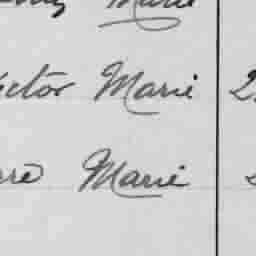 Marie
ctor Marie 2
rre Marie